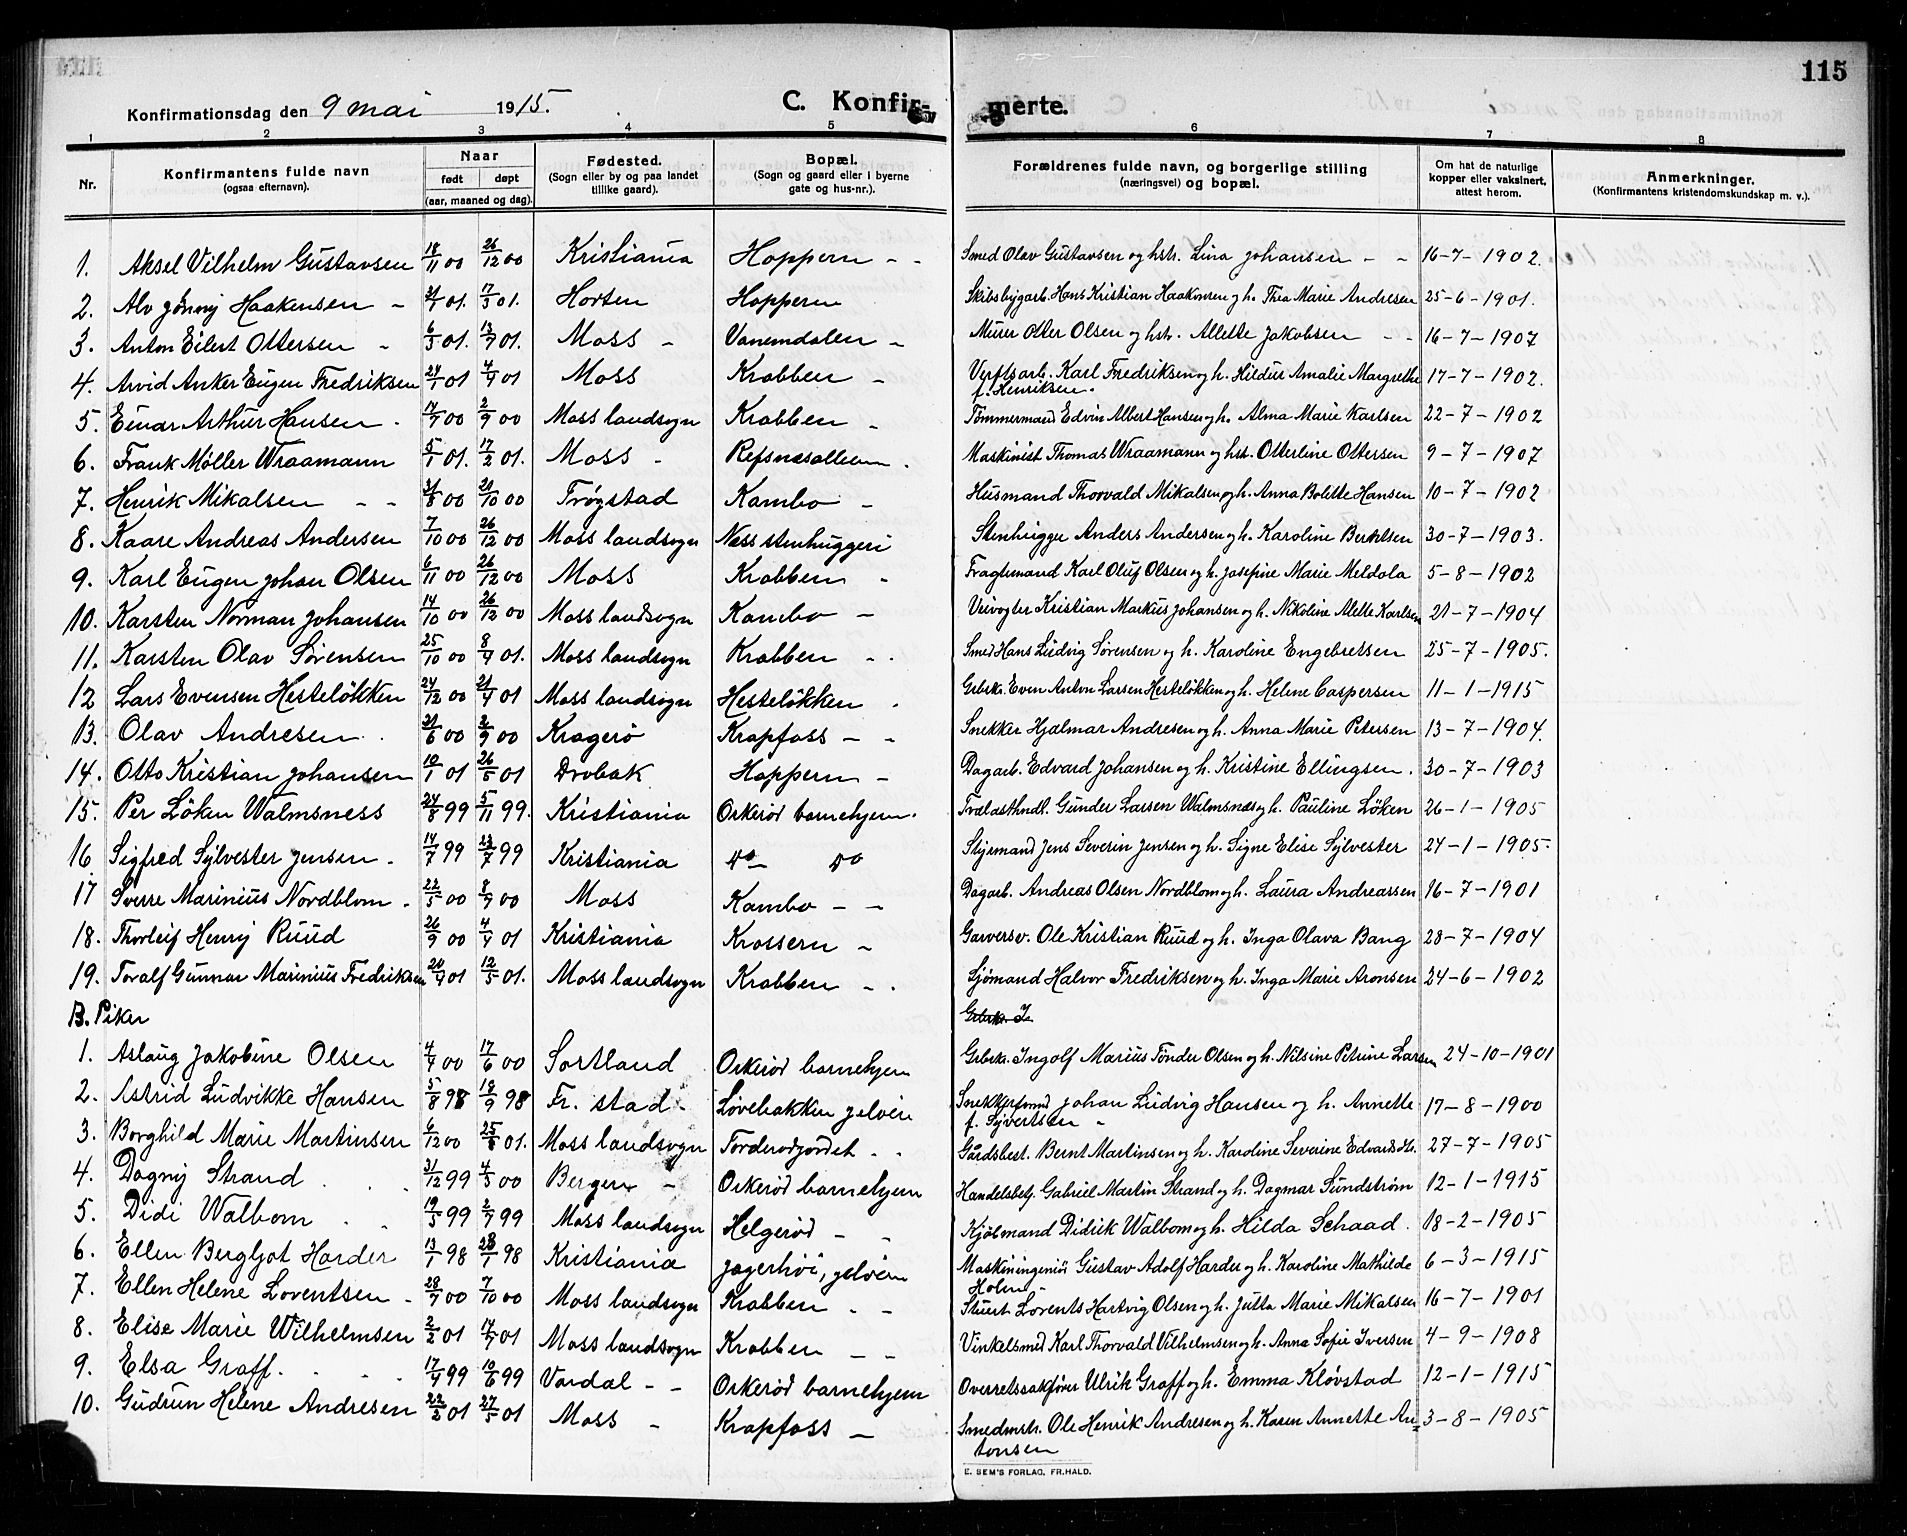 115
Konfirmationsdag den 9 mai 1915.
C. Konfirmerte.
1 2 3 4 5 6 7 8
Nr. | Konfirmantens fulde navn (ogsaa efternavn). | Naar født døpt (aar, maaned og dag). | Fødested. (Sogn eller by og paa landet tillike gaard). | Bopæl. (Sogn og gaard eller i byerne gate og hus-nr.). | Forældrenes fulde navn, og borgerlige stilling (næringsvei) og bopæl. | Om hat de naturlige kopper eller vaksinert, attest herom. | Anmerkninger. (Konfirmantens kristendomskundskap m. v.).
1. Aksel Vilhelm Gustavsen 18/11 00 26/12 00 Kristiania Hoppern - - Smed Olav Gustavsen og hstr. Lina Johansen - - 16-7-1902.
2. Alv Jonny Haakensen - 31/1 01. 17/3 01. Horten Hoppern Skibsbygarb. Hans Kristian Haakonsen og h. Thea Marie Andresen 25-6-1901.
3. Anton Eilert Ottersen - 6/3 01. 13/7 01. Moss - Vanemdalen - Murer Otter Olsen og hstr. Allette Jakobsen - - 16-7-1907
4. Arvid Anker Eugen Fredriksen 24/1 01 4/4 01 Moss Krabben - Verftsarb. Karl Fredriksen og h. Hildur Amalie Margrethe 17-7-1902.
f. Henriksen.
5. Einar Arthur Hansen. 14/7 00 2/9 00 Moss landsogn Krabben - Tømmermand Edvin Albert Hansen og h. Alma Marie Karlsen 22-7-1902
6. Frank Møller Wraamann 5/1 01. 17/2 01. Moss - Refsnesalleen. Maskinist Thomas Wraamann og hst. Otterline Ottersen 9-7-1907
7. Henrik Mikalsen - - 31/8 00 20/10 00 Trøgstad Kambo - Husmand Thorvald Mikalsen og h. Anna Bolette Hansen 10-7-1902
8. Kaare Andreas Andersen 7/10 00 26/12 00 Moss landsogn Ness stenhuggeri Stenhugger Anders Andersen og h. Karoline Berntsen 30-7-1903.
9. Karl Eugen Johan Olsen 6/11 00 26/12 00 Moss Krabben - Fragtemand Karl Oluf Olsen og h. Josefine Marie Meldola 5-8-1902
10. Karsten Norman Johansen 14/10 00 26/12 00 Moss landsogn Kambo - Veivogter Kristian Markus Johansen og h. Nikoline Alette Karlsen 21-7-1904
11. Karsten Olav Sørensen 25/10 00 8/4 01. Moss landsogn Krabben - . Smed Hans Ludvig Sørensen og h. Karoline Engebretsen 25-7-1905.
12 Lars Evensen Hesteløkken 24/12 00 21/4 01 Moss landsogn Hesteløkken . Gbrk. Even Anton Larsen Hesteløkken og h. Helene Caspersen 11-1-1915
13. Olav Andresen . 21/6 00 2/9 00 Kragerø Krapfoss - - Snekker Hjalmar Andresen og h. Anna Marie Petersen 13-7-1904.
14. Otto Kristian Johansen 10/1 01 26/5 01 Drobak Hoppern - Dagarb. Edvard Johansen og h. Kristine Ellingsen. 30-7-1903
15. Per Løken Walmsness 24/8 99 5/11 99. Kristiania Orkerød barnehjem. Trælasthndl. Gunder Larsen Walmsnes og h. Pauline Løken 26-1-1905
16 Sigfred Sylvester Jensen . 14/7 99 23/7 99 Kristiania do do Styrmand Jens Severin Jensen og h. Signe Elise Sylvester 24-1-1905-
17 Sverre Marinius Nordblom . 22/5 00 8/7 00 Moss Kambo - - Dagarb. Andreas Olsen Nordblom og h. Laura Andreassen 16-7-1901
18. Thorleif Henry Ruud 26/9 00 4/4 01 Kristiania Krossern - Garversv. Ole Kristian Ruud og h. Inga Olava Bang 28-7-1904
19. Toralf Gunnar Marinius Fredriksen 20/4 01 12/5 01. Moss landsogn Krabben - . Sjømand Halvor Fredriksen og h. Inga Marie Aronsen 24-6-1902
B. Piker
Gbrk. I.
1. Aslaug Jakobine Olsen 4/4 00 17/6 00 Sortland Orkerød barnehjem Gbrk. Ingolf Marius Tønder Olsen og h. Nilsine Petrine Larsen 24-10-1901
2. Astrid Ludvikke Hansen 5/8 98 18/9 98 Fr. stad - Løvebakken Jeløen Snekkerformd Johan Ludvig Hansen og h. Annette 17-8-1900
f. Syvertsen -
3. Borghild Marie Martinsen 6/12 00 25/8 01. Moss landsogn Torderødjordet - . Gårdsbest. Bernt Martinsen og h. Karoline Severine Edvardsdtr. 27-7-1905
4. Dagny Strand . . 31/12 99 4/5 00 Bergen - Orkerød barnehjem Handelsbetj. Gabriel Martin Strand og h. Dagmar Sundstrøm 12-1-1915
5. Didi Walbom . . 19/5 99 2/7 99 Moss landsogn Helgerød - - Kjøbmand Didrik Walbom og h. Hilda Schaad . 18-2-1905
6. Ellen Bergljot Harder 13/1 98 28/1 98 Kristiania Jagerhøi, Jeløen Maskiningeniør Gustav Adolf Harder og h. Karoline Mathilde 6-3-1915
Holm -
7. Ellen Helene Lorentsen - 28/7 00 7/10 00 Moss landsogn Krabben - - Stuert Lorents Hartvig Olsen og h. Jutta Marie Mikalsen 16-7-1901
8. Elise Marie Wilhelmsen 2/2 01 14/7 01 Moss landsogn Krabben - - Vinkelsmed Karl Thorvald Vilhelmsen og h. Anna Sofie Iversen 4-9-1908
9. Elsa Graff . . . 17/4 99 10/6 99 Vardal - - Orkerød barnehjem Overretssakfører Ulrik Graff og h. Emma Kløvstad 12-1-1915
10. Gudrun Helene Andresen 22/2 01 27/5 01 Moss - Krapfoss - Smedmstr. Ole Henrik Andresen og h. Karen Annette An= 3-8-1905
tonsen
E. SEM'S FORLAG, FR.HALD.